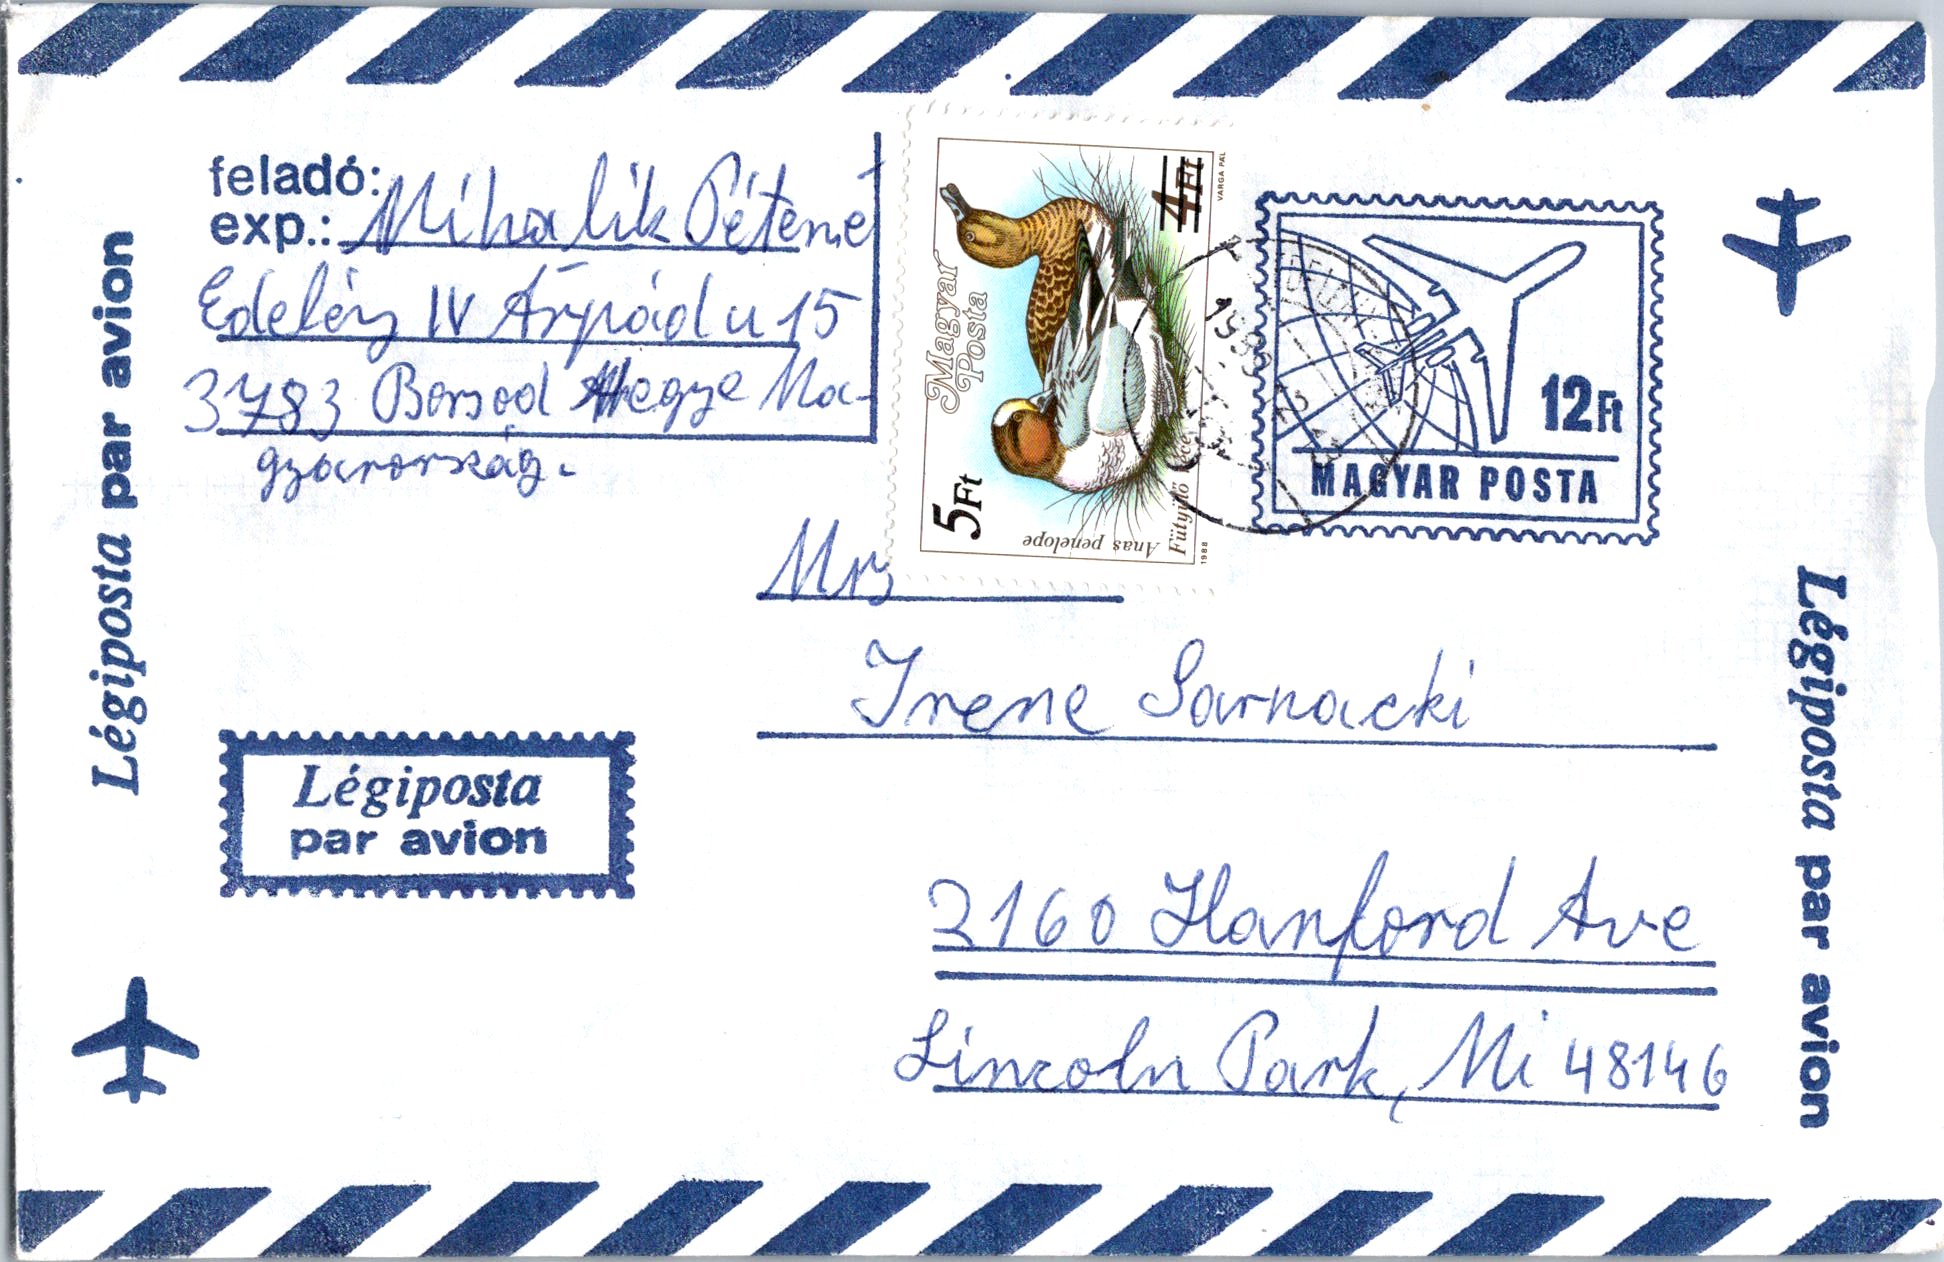 feladó:
exp.: Mihalik Péterné
Edelény IV Árpád u 15
3783 Borsod Megye Ma-
gyarország.
Légiposta par avion
Magyar
Posta
4Ft
5Ft
VARGA PÁL
Anas penelope
Fütyülő réce
1988
12Ft
MAGYAR POSTA
Mrs
Irene Sarnacki
2160 Hanford Ave
Lincoln Park, Mi 48146
Légiposta
par avion
Légiposta par avion